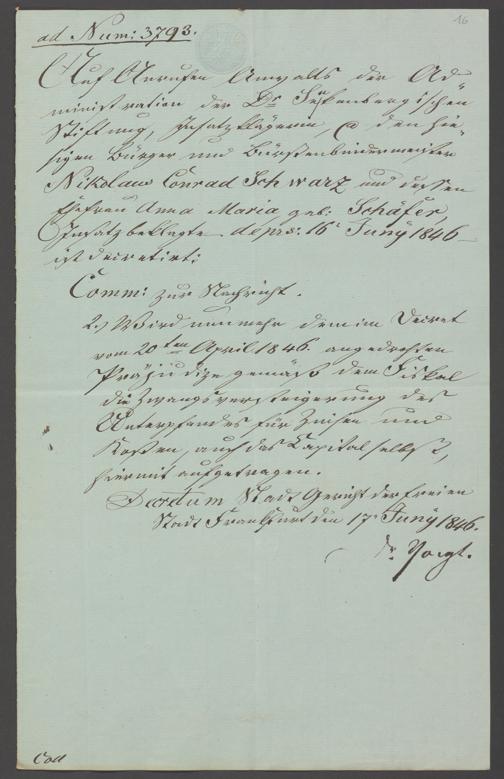 16
ad Num: 3793.
Auf Anrufen Anwalts der Ad-
ministration der Dr Senkenbergischen
Stiftung, Insatzklägerin, ca den hie-
sigen Bürger und Bürstenbindermeister
Nikolaus Conrad Schwarz und dessen
Ehefrau Anna Maria geb: Schäfer,
Insatzbeklagte. de prs: 16t Juny 1846
ist decretirt:
Comm: zur Nachricht.
2.) Wird nunmehr dem im Decret
vom 20ten April 1846. angedrohten
Präjudize gemäß dem Fiskal
die Zwangsversteigerung des
Unterpfandes für Zinsen und
Kosten, auch das Capital selbst,
hiermit aufgetragen.
Decretum Stadt Gericht der freien
Stadt Frankfurt den 17t Juny 1846.
Dr Voigt.